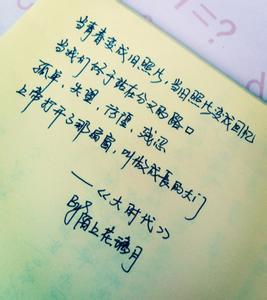 当青春变成旧照片,当旧照片变成回忆
当我们终于站在分叉的路口
孤单,失望,彷徨,残忍
上帝打开了那扇窗,叫做成長的大门
——《大时代》
By 陌上花月